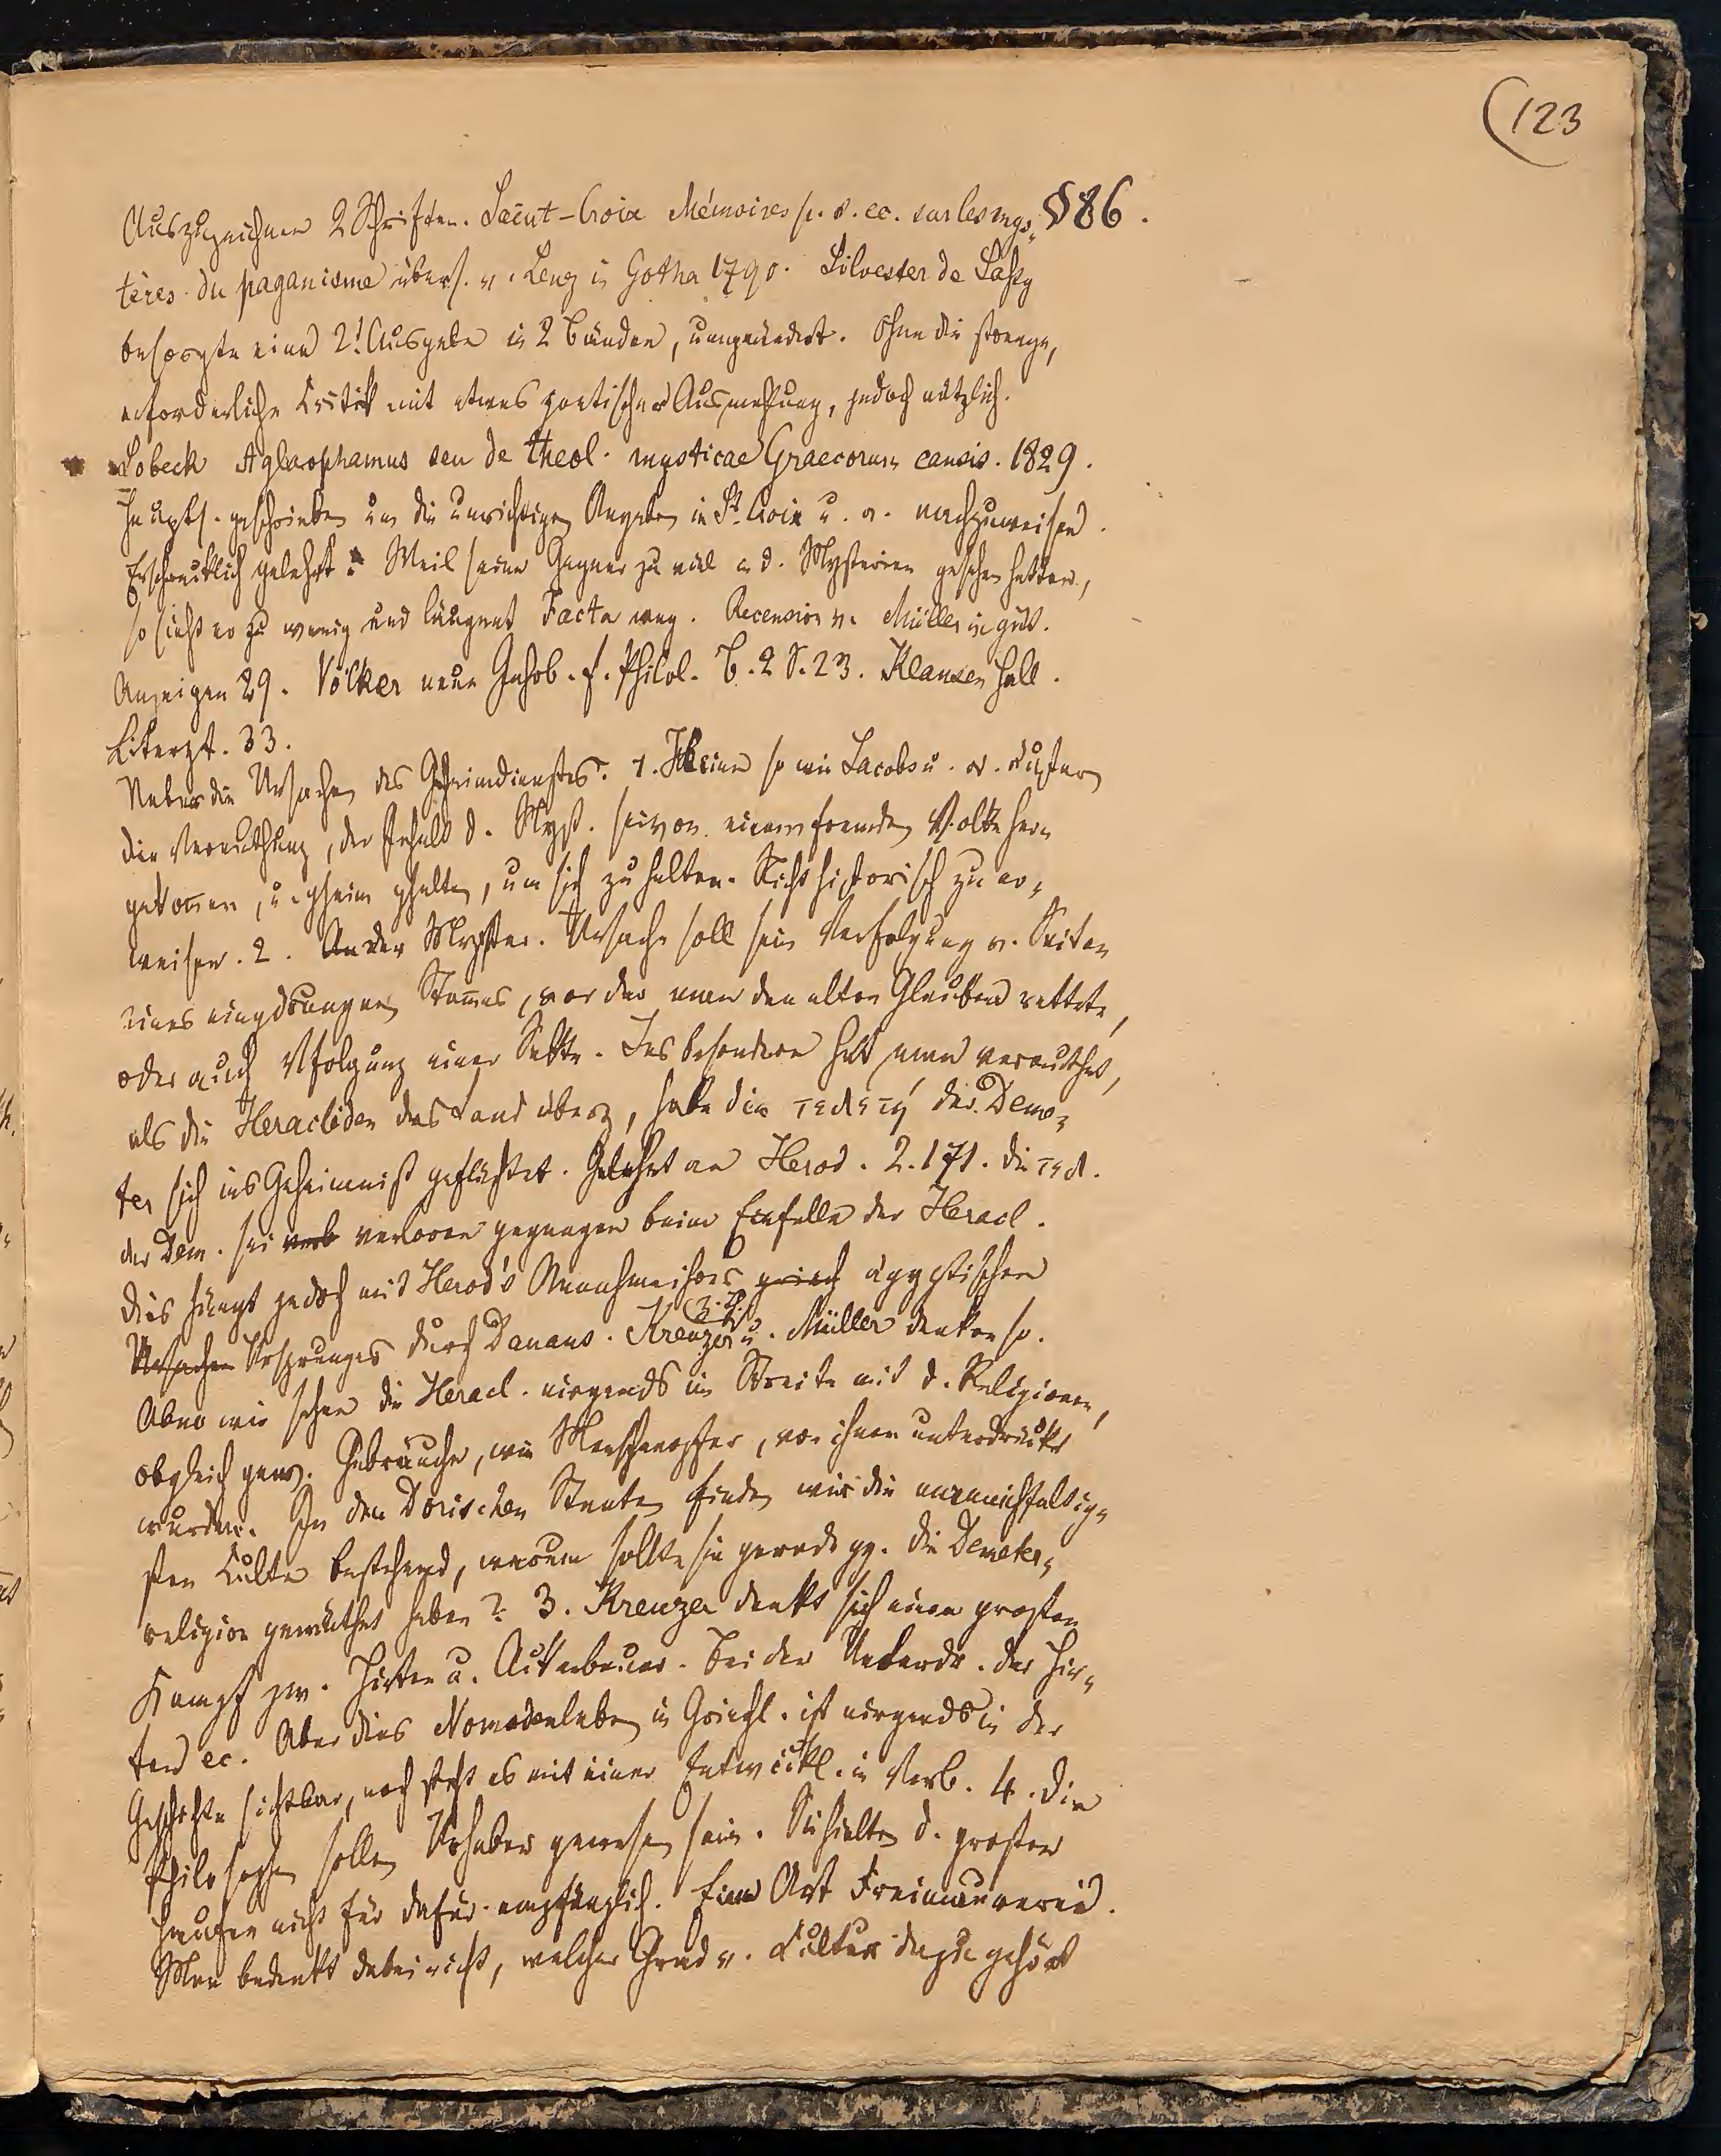 (123
Auszuzeichnen 2 Schriften. Saint-Croix Mémoires p. s. ec. sur les mys- §86.
tères du paganisme übers. v. Lenz in Gotha 1790. Silvester de Saßy
besorgte eine 2t Ausgabe in 2 Bänden, umgeändert. Ohne die strenge,
erforderliche Critik mit etwas poetischer Ausmahlung, jedoch nützlich.
Lobeck Aglaophamus seu de theol. mysticae Graecorum causis. 1829.
Hauptsl. geschrieben um die unrichtigen Angaben in St. Croix u. a. nachzuweisen.
Erschrecklich gelehrt. Weil seine Gegner zu viel in d. Mysterien gesehen hatten,
so sieht er zu wenig und läugnet Facta weg. Recension v. Müller in gött.
Anzeigen 29. Völker neue Jahrb. f. Philol. B. 2 S. 23. Klausen Hall.
Literzt. 33.
Ueber die Ursachen des Geheimdienstes. 1. Kleine so wie Jacobs u. a. äußern
die Vermuthung, der Inhalt d. Myst. sei von einem fremden Volke her-
gekommen, u. geheim gehalten, um sich zu halten. Nicht historisch zu er-
weisen. 2. An der Myster. Ursache soll sein Verfolgung v. Seiten
eines eingedrungnen Stammes, vor der man den alten Glauben rettete,
oder auch Vfolgung einer Sekte. Insbesondere hat man vermuthet,
als die Heracliden das Land überz, habe die τελετή der Deme-
ter sich ins Geheimniß geflüchtet. Gelehnt an Herod. 2.171. die τελ.
der Dem. sei verb verloren gegangen beim Einfalle der Heracl.
Dies hängt jedoch mit Herod's Annahme ihres griech ägyptischen
Ursachen Ursprunges durch Danaus. Kreuzer (z. Th.) u. Müller denken so.
Aber wir sehen die Heracl. nirgends im Streite mit d. Religionen,
obgleich gew. Gebräuche, wie Menschenopfer, von ihnen unterdrückt
wurden. In den Dorischen Staaten finden wir die mannichfaltig-
sten Culte bestehend, warum sollte sie gerade gg. die Demeter-
religion gewüthet haben? 3. Kreuzer denkt sich einen großen
Kampf zw. Hirten u. Ackerbauer. Bei der Unterdr. der Hir-
ten ec. Aber dies Nomadenleben in Griechl. ist nirgends in der
Geschichte sichtbar, noch steht es mit einer Entwickl. in Verb. 4. Die
Philosophen sollen Urheber gewesen sein. Sie hielten d. großen
Haufen nicht für dafür empfänglich. Eine Art Freimaurerei.
Man bedenkt dabei nicht, welcher Grad v. Cultur dazu gehört